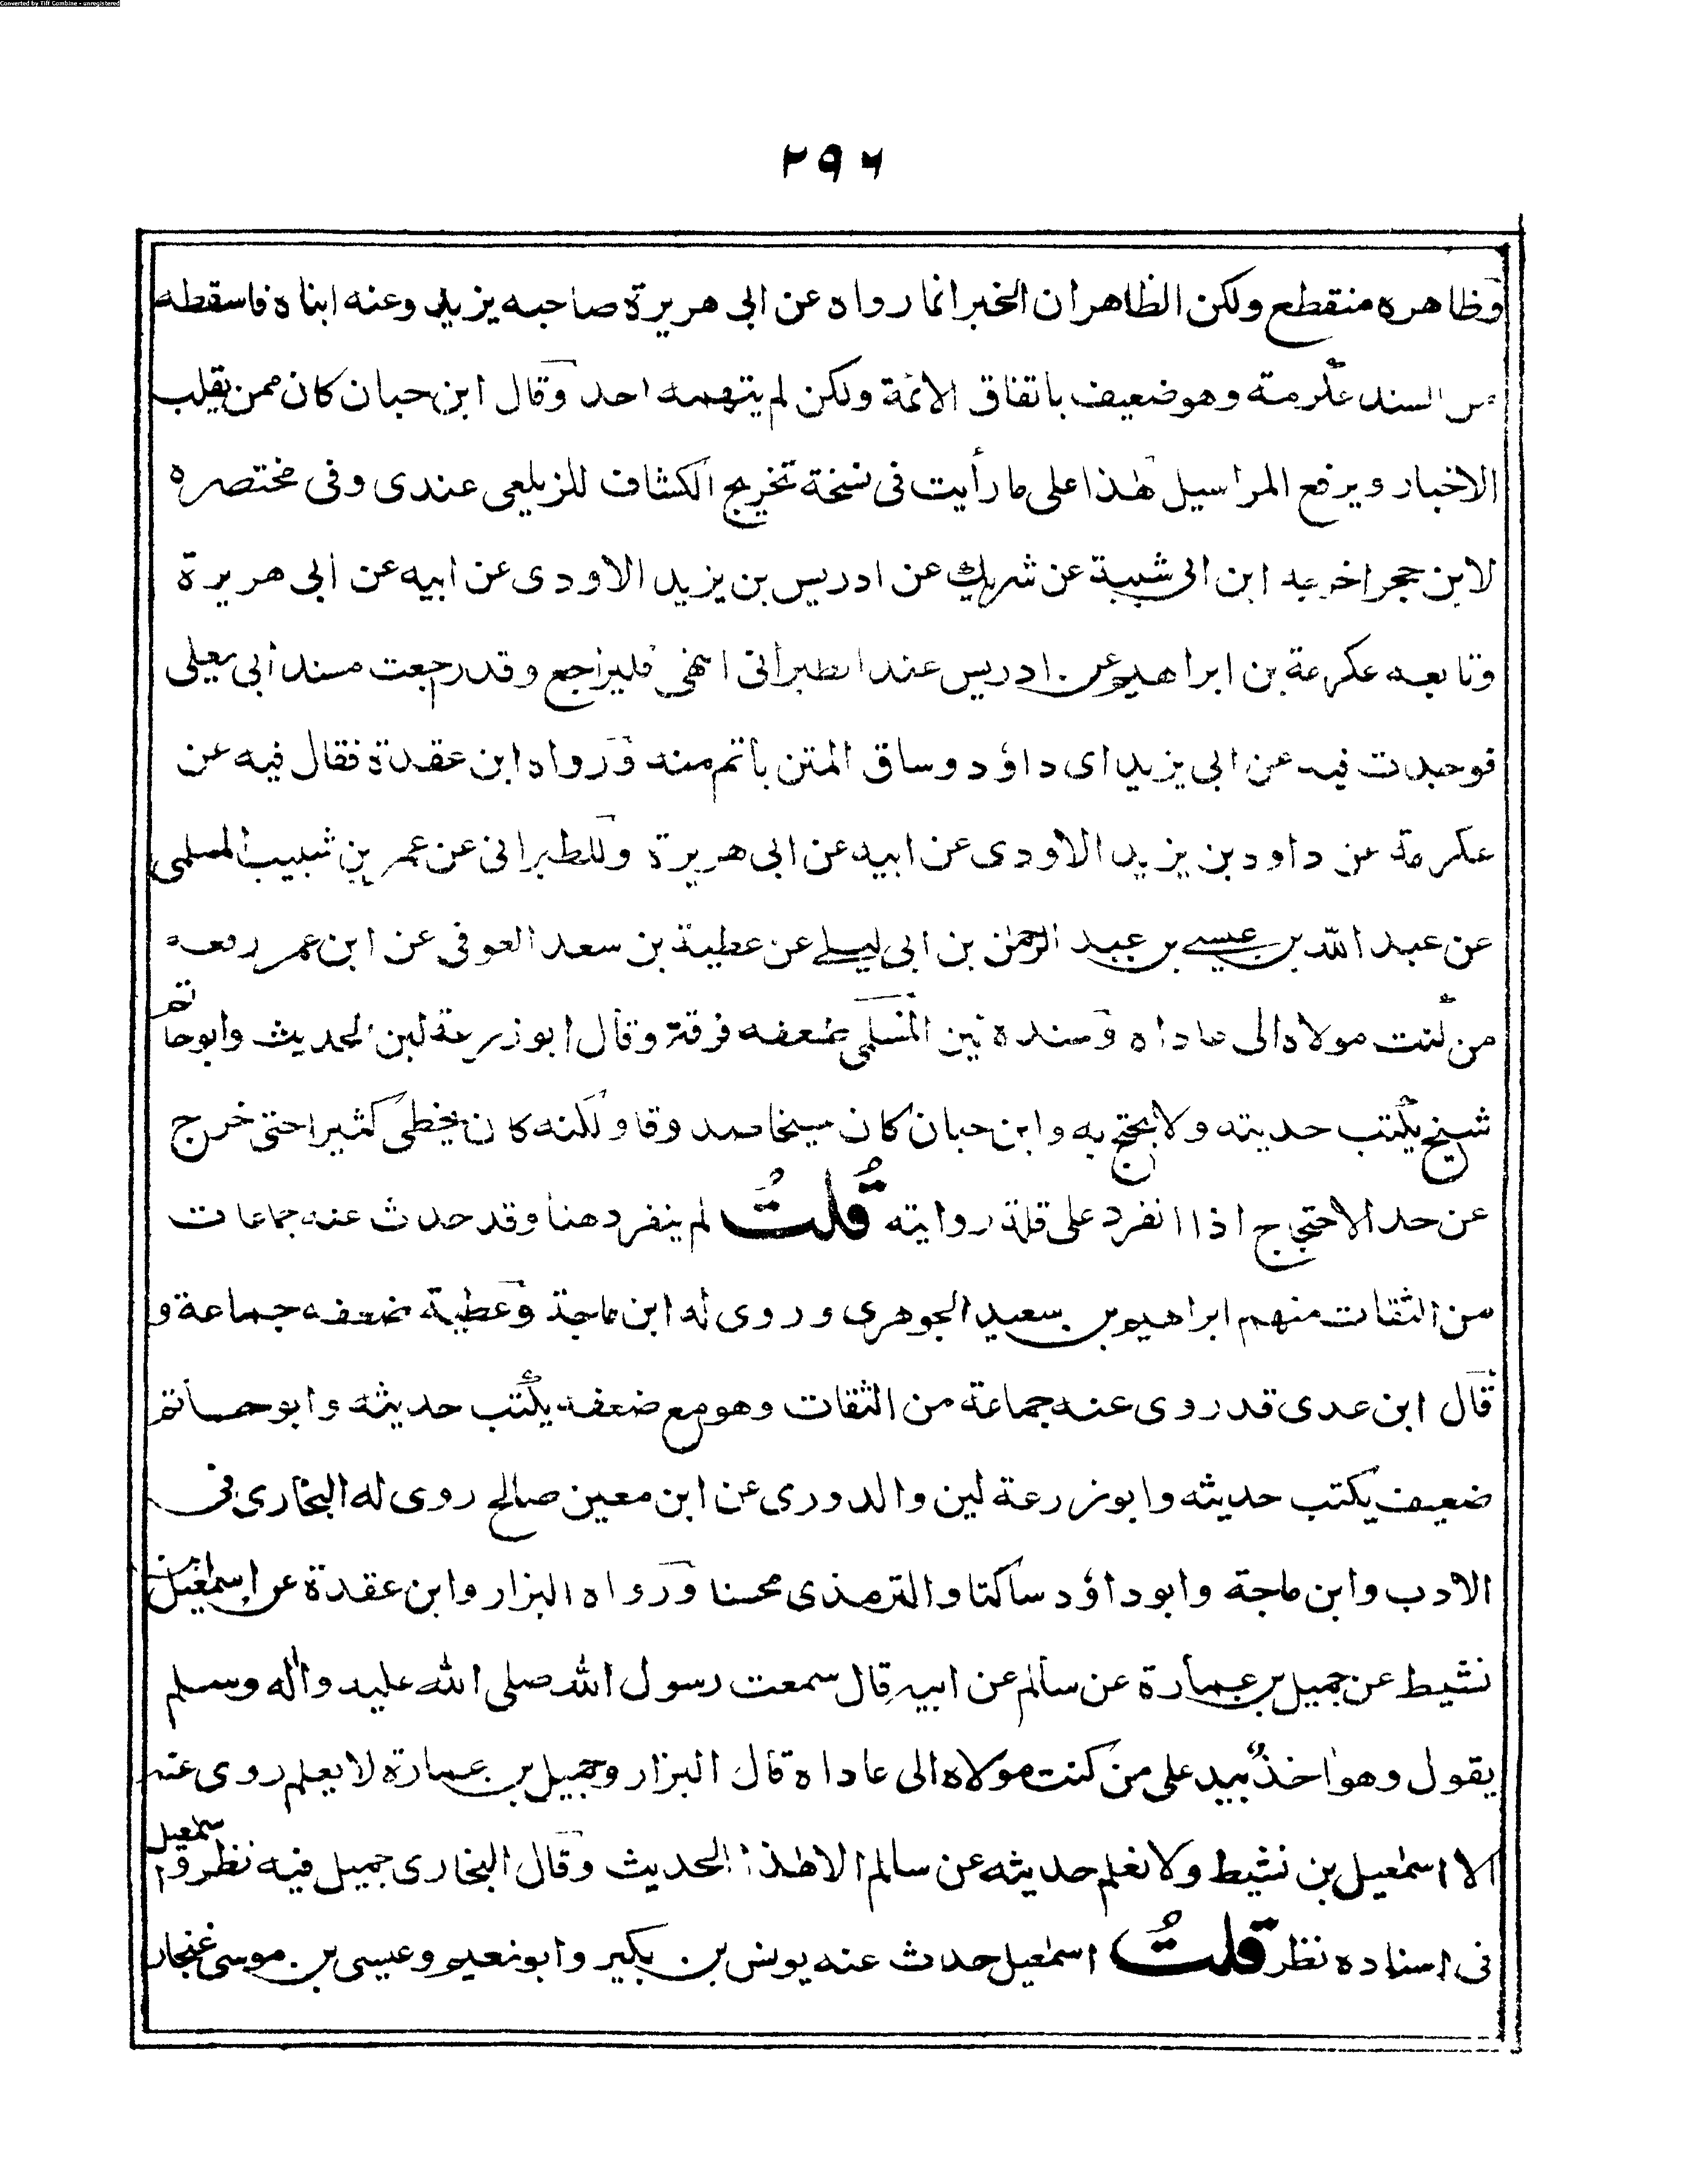 Converted by Tiff Combine - unregistered
۲۹۶
وظاهره منقطع ولكن الظاهر ان الخبر انما رواه عن ابى هريرة صاحبه يزيد وعنه ابناه فاسقطه
من السند عكرمة وهو ضعيف باتفاق الائمة ولكن لم يتهمه احد وقال ابن حبان كان ممن يقلب
الاخبار ويرفع المراسيل هذا على ما رأيت فى نسخة تخريج الكشاف للزيلعى عندى وفى مختصره
لابن حجر اخرجه ابن ابى شيبة عن شريك عن ادريس بن يزيد الاودى عن ابيه عن ابى هريرة
وتابعه عكرمة بن ابراهيم عن ادريس عند الطبرانى انتهى فليراجع وقد رجعت مسند أبى يعلى
فوجدت فيه عن ابى يزيد اى داؤد وساق المتن بأتم منه ورواه ابن عقدة فقال فيه عن
عكرمة عن داود بن يزيد الاودى عن ابيه عن ابى هريرة وللطبرانى عن عمر بن شبيب المسلمى
عن عبد الله بن عيسى بن عبد الرحمن بن ابى ليلے عن عطية بن سعد العوفى عن ابن عمر رفعه
من كنت مولاه الى عاداه وسنده لين المسلمى ضعفه فرقة وقال ابو زرعة لين الحديث وابو حاتم
شيخ يكتب حديثه ولا يحتج به وابن حبان كان شيخا صدوقا ولكنه كان يخطى كثيرا حتى خرج
عن حد الاحتجاج اذا انفرد على قلة روايته قُلتُ لم ينفرد هنا وقد حدث عنه جماعات
من الثقات منهم ابراهيم بن سعيد الجوهرى وروى له ابن ماجة وعطية ضعفه جماعة و
قال ابن عدى قد روى عنه جماعة من الثقات وهو مع ضعفه يكتب حديثه وابو حاتم
ضعيف يكتب حديثه وابو زرعة لين والدورى عن ابن معين صالح روى له البخارى فى
الادب وابن ماجة وابو داؤد ساكتا والترمذى محسنا ورواه البزار وابن عقدة عن اسمٰعيل بن
نشيط عن جميل بن عمارة عن سالم عن ابيه قال سمعت رسول الله صلى الله عليه واٰله وسلم
يقول وهو اٰخذ بيد على من كنت مولاه الى عاداه قال البزار وجميل بن عمارة لا يعلم روى عنه
الا اسمٰعيل بن نشيط ولا نعلم حديثه عن سالم الا هٰذا الحديث وقال البخارى جميل فيه نظر واسمٰعيل
فى اسناده نظر قلتُ اسمٰعيل حدث عنه يونس بن بكير وابو نعيم وعيسى بن موسى غنجار